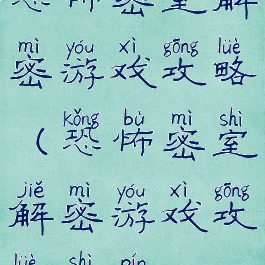 mì yóu xì gōng lüè
密游戏攻略
kǒng bù mì shì
（恐怖密室
jiě mì yóu xì gōng
解密游戏攻
lüè shì pín